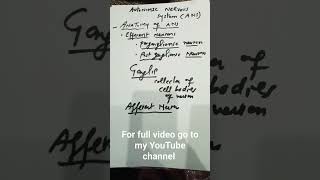 Autonomic Nervous
System (ANS)
- Anatomy of ANS
• Efferent neurons
• Preganglionic neuron
• Post ganglionic Neuron
Ganglia
collection of
cell bodies
of neuron
Afferent Neuron
For full video go to
my YouTube
channel